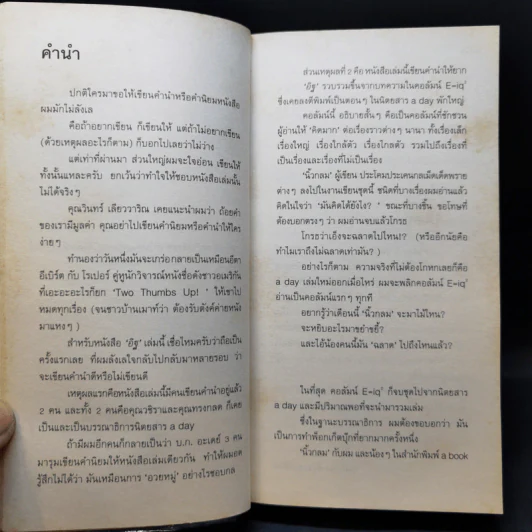 คำนำ
ปกติใครมาขอให้เขียนคำนำหรือคำนิยมหนังสือ
ผมมักไม่ลังเล
คือถ้าอยากเขียน ก็เขียนให้ แต่ถ้าไม่อยากเขียน
(ด้วยเหตุผลอะไรก็ตาม) ก็บอกไปเลยว่าไม่ว่าง
แต่เท่าที่ผ่านมา ส่วนใหญ่ผมจะใจอ่อน เขียนให้
ทั้งนั้นแหละครับ ยกเว้นว่าทำใจให้ชอบหนังสือเล่มนั้น
ไม่ได้จริงๆ
คุณวินทร์ เลียววาริณ เคยแนะนำผมว่า ถ้อยคำ
ของเรามีมูลค่า คุณอย่าไปเขียนคำนิยมหรือคำนำให้ใคร
ง่ายๆ
ทำนองว่าวันหนึ่งมันจะเกร่อกลายเป็นเหมือนอีตา
อีเบิร์ต กับ โรเปอร์ คู่หูนักวิจารณ์หนังชื่อดังชาวอเมริกัน
ที่เอะอะอะไรก็ยก 'Two Thumbs Up! ' ให้เขาไป
หมดทุกเรื่อง (จนชาวบ้านเมาท์ว่า ต้องรับตังค์ค่ายหนัง
มาแหงๆ )
สำหรับหนังสือ 'อิฐ' เล่มนี้ เชื่อไหมครับว่าถือเป็น
ครั้งแรกเลย ที่ผมลังเลใจกลับไปกลับมาหลายรอบ ว่า
จะเขียนคำนำดีหรือไม่เขียนดี
เหตุผลแรกคือหนังสือเล่มนี้มีคนเขียนคำนำอยู่แล้ว
2 คน และทั้ง 2 คนคือคุณวชิราและคุณทรงกลด ก็เคย
เป็นและเป็นบรรณาธิการนิตยสาร a day
ถ้ามีผมอีกคนก็กลายเป็นว่า บ.ก. อะเดย์ 3 คน
มารุมเขียนคำนิยมให้หนังสือเล่มเดียวกัน ทำให้ผมอด
รู้สึกไม่ได้ว่า มันเหมือนการ 'อวยหมู่' อย่างไรชอบกล
ส่วนเหตุผลที่ 2 คือ หนังสือเล่มนี้เขียนคำนำให้ยาก
'อิฐ' รวบรวมขึ้นจากบทความในคอลัมน์ E=iq²
ซึ่งเคยลงตีพิมพ์เป็นตอนๆ ในนิตยสาร a day พักใหญ่
คอลัมน์นี้ อธิบายสั้นๆ คือเป็นคอลัมน์ที่ชักชวน
ผู้อ่านให้ 'คิดมาก' ต่อเรื่องราวต่างๆ นานา ทั้งเรื่องเล็ก
เรื่องใหญ่ เรื่องใกล้ตัว เรื่องไกลตัว รวมไปถึงเรื่องที่
เป็นเรื่องและเรื่องที่ไม่เป็นเรื่อง
'นิ้วกลม' ผู้เขียน ประโคมประเคนกลเม็ดเด็ดพราย
ต่างๆ ลงไปในงานเขียนชุดนี้ ชนิดที่บางเรื่องผมอ่านแล้ว
คิดในใจว่า 'มันคิดได้ยังไง? ' ขณะที่บางชิ้น ขอโทษที่
ต้องบอกตรงๆ ว่า ผมอ่านจบแล้วโกรธ
โกรธว่าเอ็งจะฉลาดไปไหน!? (หรืออีกนัยคือ
ทำไมเราถึงไม่ฉลาดเท่ามัน? )
อย่างไรก็ตาม ความจริงที่ไม่ต้องโกหกเลยก็คือ
a day เล่มใหม่ออกเมื่อไหร่ ผมจะพลิกคอลัมน์ E=iq²
อ่านเป็นคอลัมน์แรกๆ ทุกที
อยากรู้ว่าเดือนนี้ 'นิ้วกลม' จะมาไม้ไหน?
จะหยิบอะไรมาขยำขยี้?
และไอ้น้องคนนี้มัน 'ฉลาด' ไปถึงไหนแล้ว?
ในที่สุด คอลัมน์ E=iq² ก็จบชุดไปจากนิตยสาร
a day และมีปริมาณพอที่จะนำมารวมเล่ม
ซึ่งในฐานะบรรณาธิการ ผมต้องขอบอกว่า มัน
เป็นการทำพ็อกเก็ตบุ๊กที่ยากมากครั้งหนึ่ง
'นิ้วกลม' กับผม และน้องๆ ในสำนักพิมพ์ a book